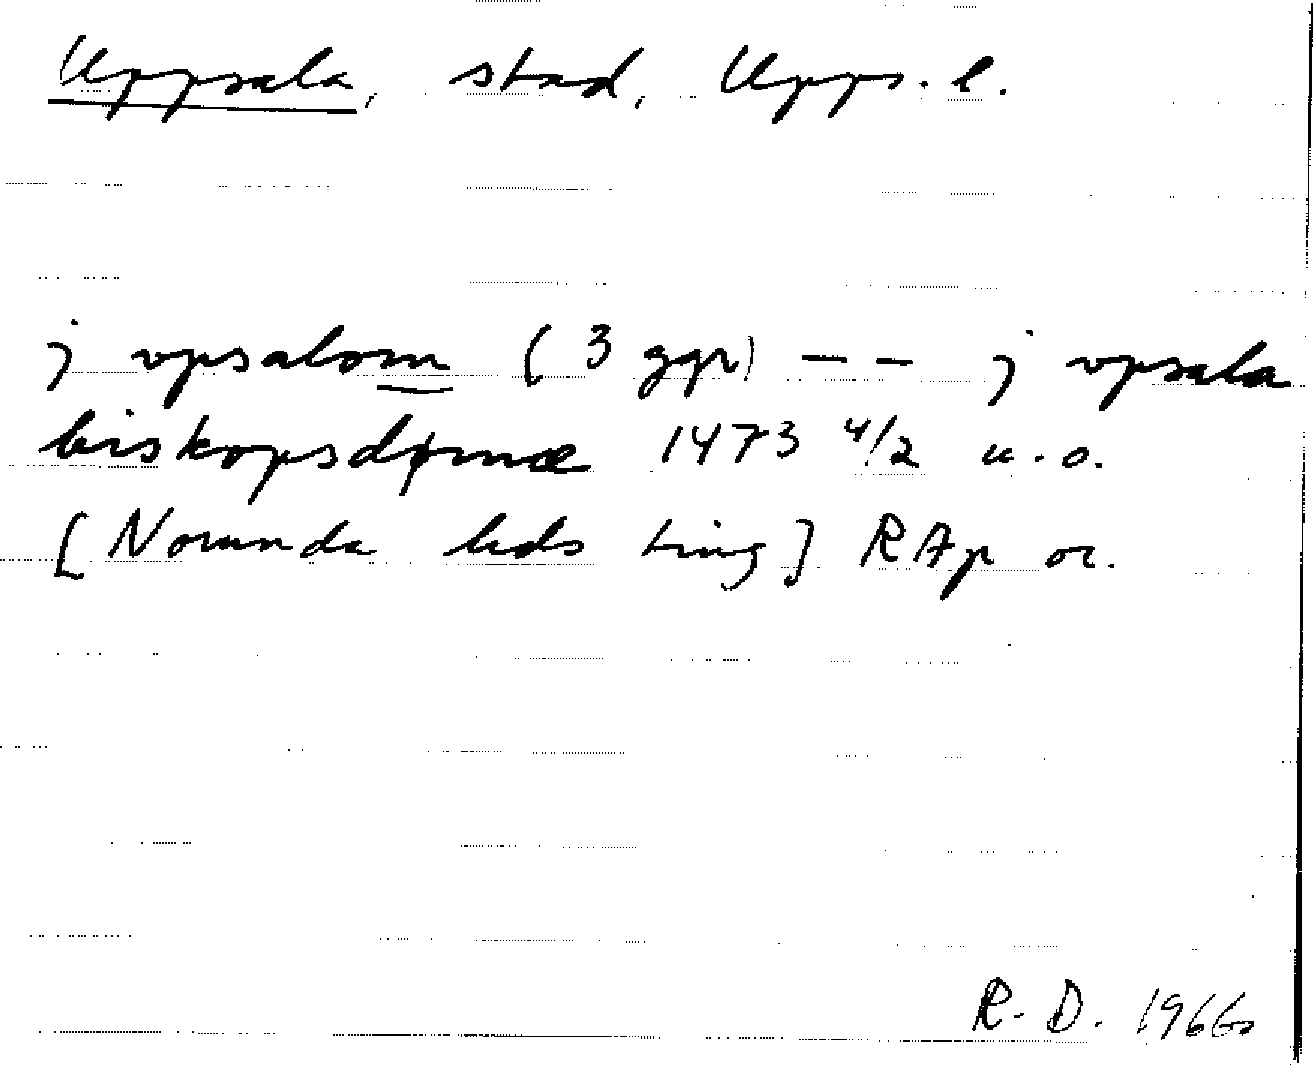 Uppsala, stad, Upps. l.
j vpsalom (3 ggr) — — j vpsala
biskopsdømæ 1473 4/2 u.o.
[Norunda hds ting] RAp or.
R. D. 1966